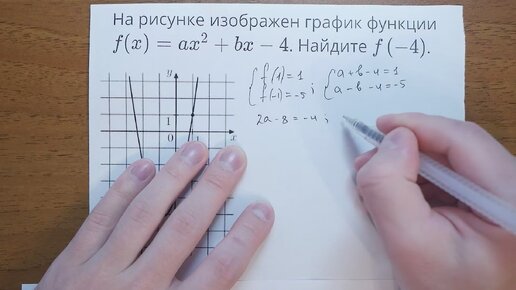 На рисунке изображен график функции
f(x) = ax² + bx − 4. Найдите f(−4).
y
1
0
1
x
{ f(1) = 1
f(-1) = -5 ; { a + b - 4 = 1
a - b - 4 = -5
2a - 8 = -4 ;